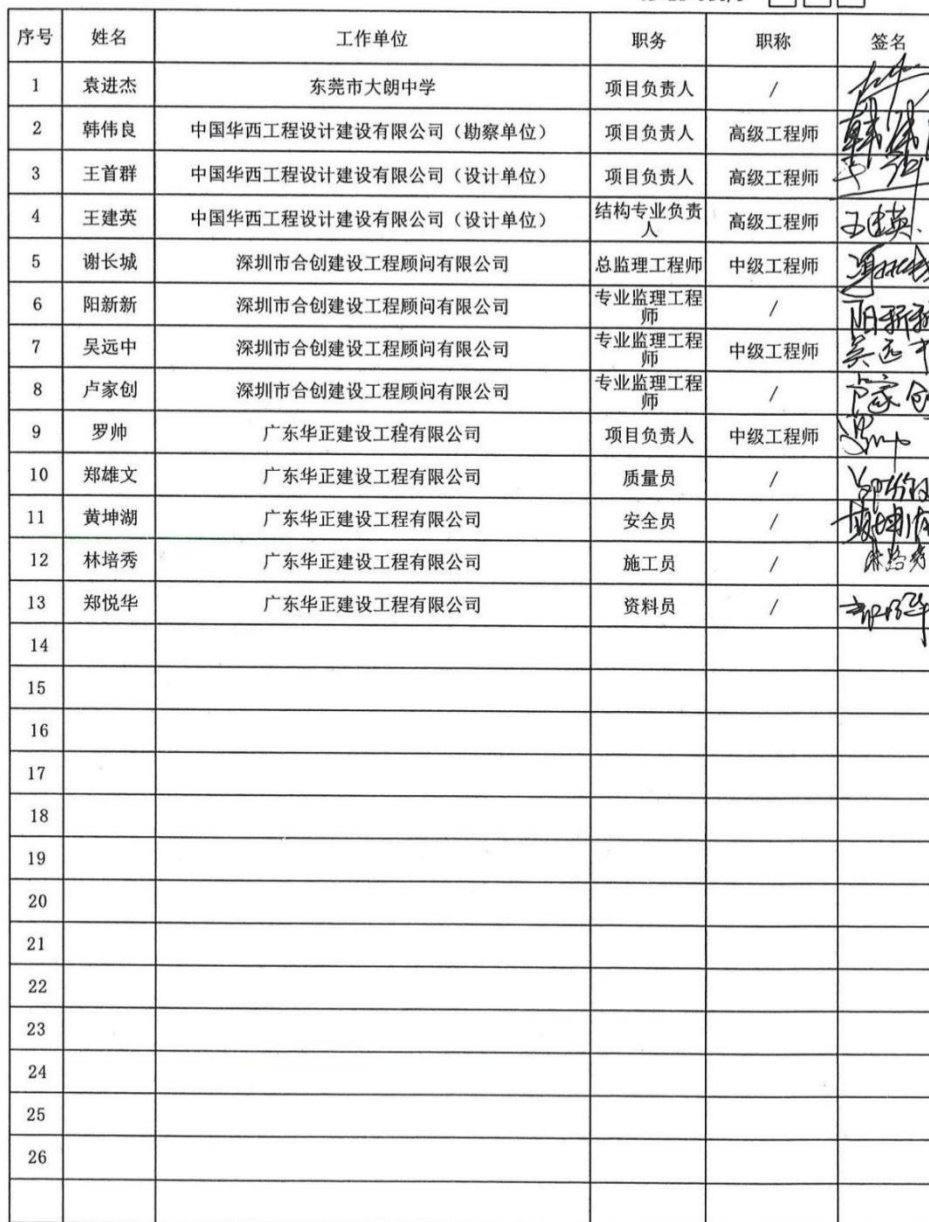 序号 姓名 工作单位 职务 职称 签名
1 袁进杰 东莞市大朗中学 项目负责人 /
2 韩伟良 中国华西工程设计建设有限公司（勘察单位） 项目负责人 高级工程师 韩伟
3 王首群 中国华西工程设计建设有限公司（设计单位） 项目负责人 高级工程师
4 王建英 中国华西工程设计建设有限公司（设计单位） 结构专业负责人 高级工程师 王建英
5 谢长城 深圳市合创建设工程顾问有限公司 总监理工程师 中级工程师
6 阳新新 深圳市合创建设工程顾问有限公司 专业监理工程师 / 阳新新
7 吴远中 深圳市合创建设工程顾问有限公司 专业监理工程师 中级工程师 吴远中
8 卢家创 深圳市合创建设工程顾问有限公司 专业监理工程师 / 卢家创
9 罗帅 广东华正建设工程有限公司 项目负责人 中级工程师
10 郑雄文 广东华正建设工程有限公司 质量员 /
11 黄坤湖 广东华正建设工程有限公司 安全员 /
12 林培秀 广东华正建设工程有限公司 施工员 / 林培秀
13 郑悦华 广东华正建设工程有限公司 资料员 /
14
15
16
17
18
19
20
21
22
23
24
25
26